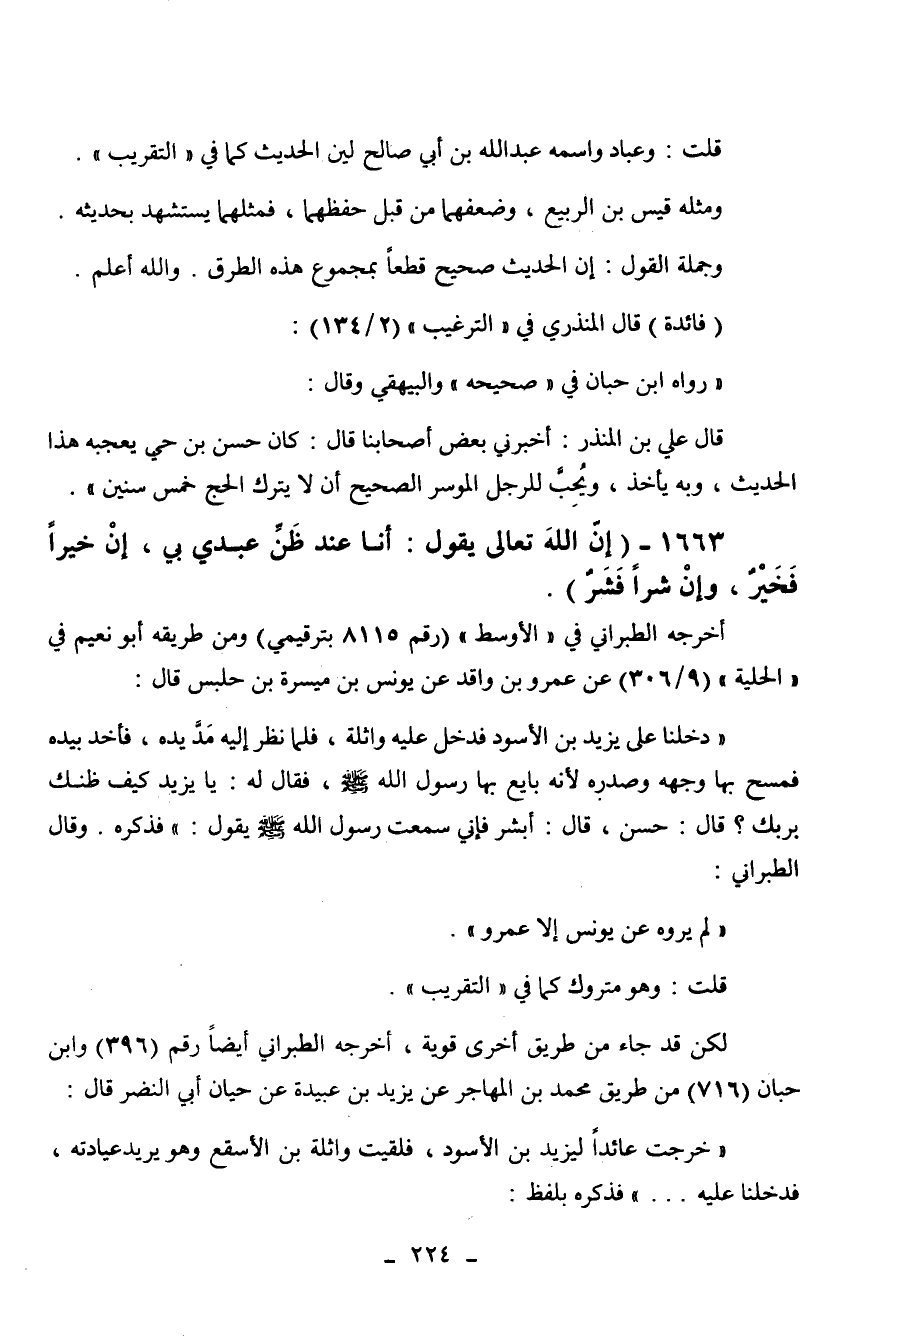 قلت : وعباد واسمه عبدالله بن أبي صالح لين الحديث كما في « التقريب » .
ومثله قيس بن الربيع ، وضعفهما من قبل حفظهما ، فمثلهما يستشهد بحديثه .
وجملة القول : إن الحديث صحيح قطعاً بمجموع هذه الطرق . والله أعلم .
( فائدة ) قال المنذري في « الترغيب » (٢/ ١٣٤) :
« رواه ابن حبان في « صحيحه » والبيهقي وقال :
قال علي بن المنذر : أخبرني بعض أصحابنا قال : كان حسن بن حي يعجبه هذا
الحديث ، وبه يأخذ ، ويُحِبَّ للرجل الموسر الصحيح أن لا يترك الحج خمس سنين » .
١٦٦٣ - ( إنّ اللهَ تعالى يقول : أنـا عند ظَنِّ عبـدي بي ، إنْ خيراً
فَخَيْرٌ ، وإنْ شراً فَشَرٌ ) .
أخرجه الطبراني في « الأوسط » (رقم ٨١١٥ بترقيمي) ومن طريقه أبو نعيم في
« الحلية » (٩/ ٣٠٦) عن عمرو بن واقد عن يونس بن ميسرة بن حلبس قال :
« دخلنا على يزيد بن الأسود فدخل عليه واثلة ، فلما نظر إليه مَدَّ يده ، فأخد بيده
فمسح بها وجهه وصدره لأنه بايع بها رسول الله ﷺ ، فقال له : يا يزيد كيف ظنـك
بربك ؟ قال : حسن ، قال : أبشر فإني سمعت رسول الله ﷺ يقول : » فذكره . وقال
الطبراني :
« لم يروه عن يونس إلا عمرو » .
قلت : وهو متروك كما في « التقريب » .
لكن قد جاء من طريق أخرى قوية ، أخرجه الطبراني أيضاً رقم (٣٩٦) وابن
حبان (٧١٦) من طريق محمد بن المهاجر عن يزيد بن عبيدة عن حيان أبي النضر قال :
« خرجت عائداً ليزيد بن الأسود ، فلقيت واثلة بن الأسقع وهو يريدعيادته ،
فدخلنا عليه . . . » فذكره بلفظ :
- ٢٢٤ -